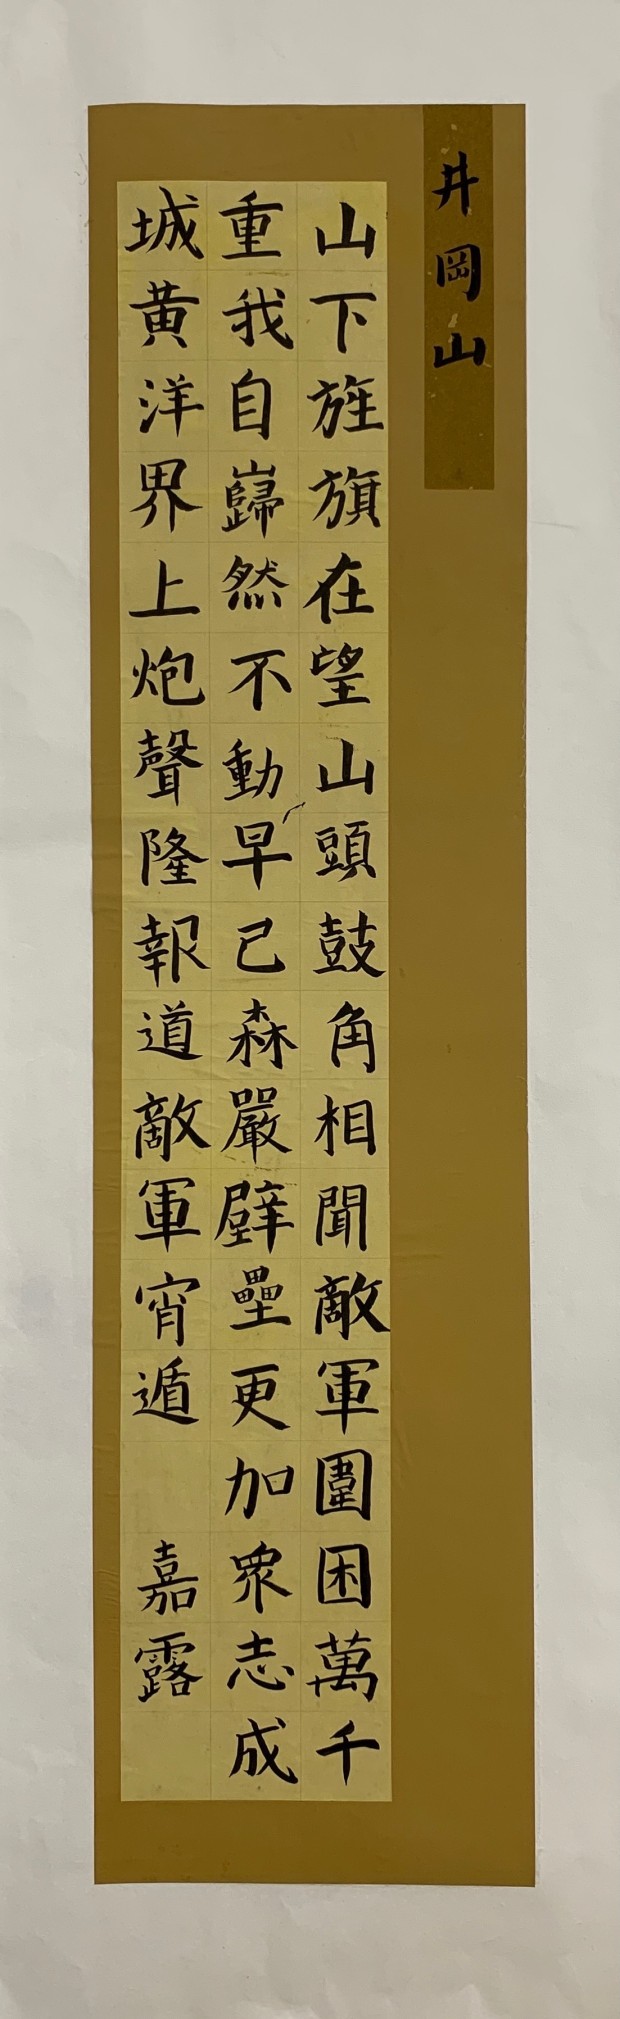 井岡山
山下旌旗在望山頭鼓角相聞敵軍圍困萬千
重我自巋然不動早已森嚴壁壘更加眾志成
城黄洋界上炮聲隆報道敵軍宵遁 嘉露